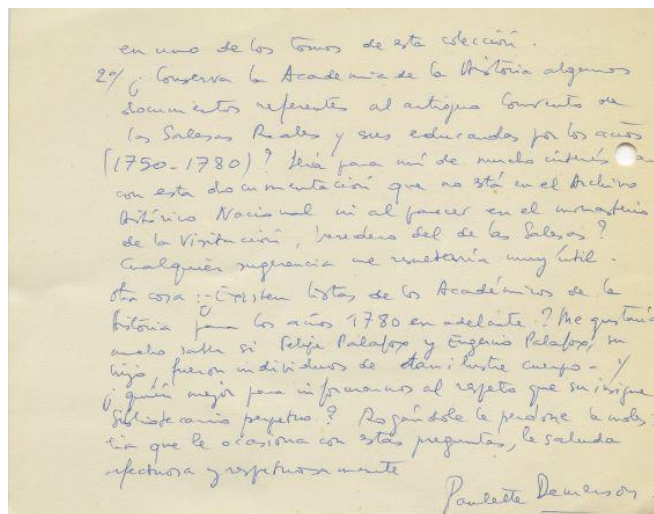 en uno de los tomos de esta colección.
2º/ ¿Conserva la Academia de la Historia algunos
documentos referentes al antiguo Convento de
las Salesas Reales y sus educandas por los años
(1750-1780)? Sería para mí de mucho interés
con esta documentación que no está en el Archivo
Histórico Nacional ni al parecer en el monasterio
de la Visitación, heredero del de las Salesas?
Cualquier sugerencia me resultaría muy útil.
Otra cosa: ¿Existen listas de los Académicos de la
Historia para los años 1780 en adelante? Me gustaría
mucho saber si Felipe Palafox y Eugenio Palafox, su
hijo, fueron individuos de tan ilustre cuerpo - y
¿quién mejor para informarnos al respeto que su insigne
Bibliotecario perpetuo? Rogándole le perdone la moles-
tia que le ocasiona con estas preguntas, le saluda
afectuosa y respetuosamente
Paulette Demerson